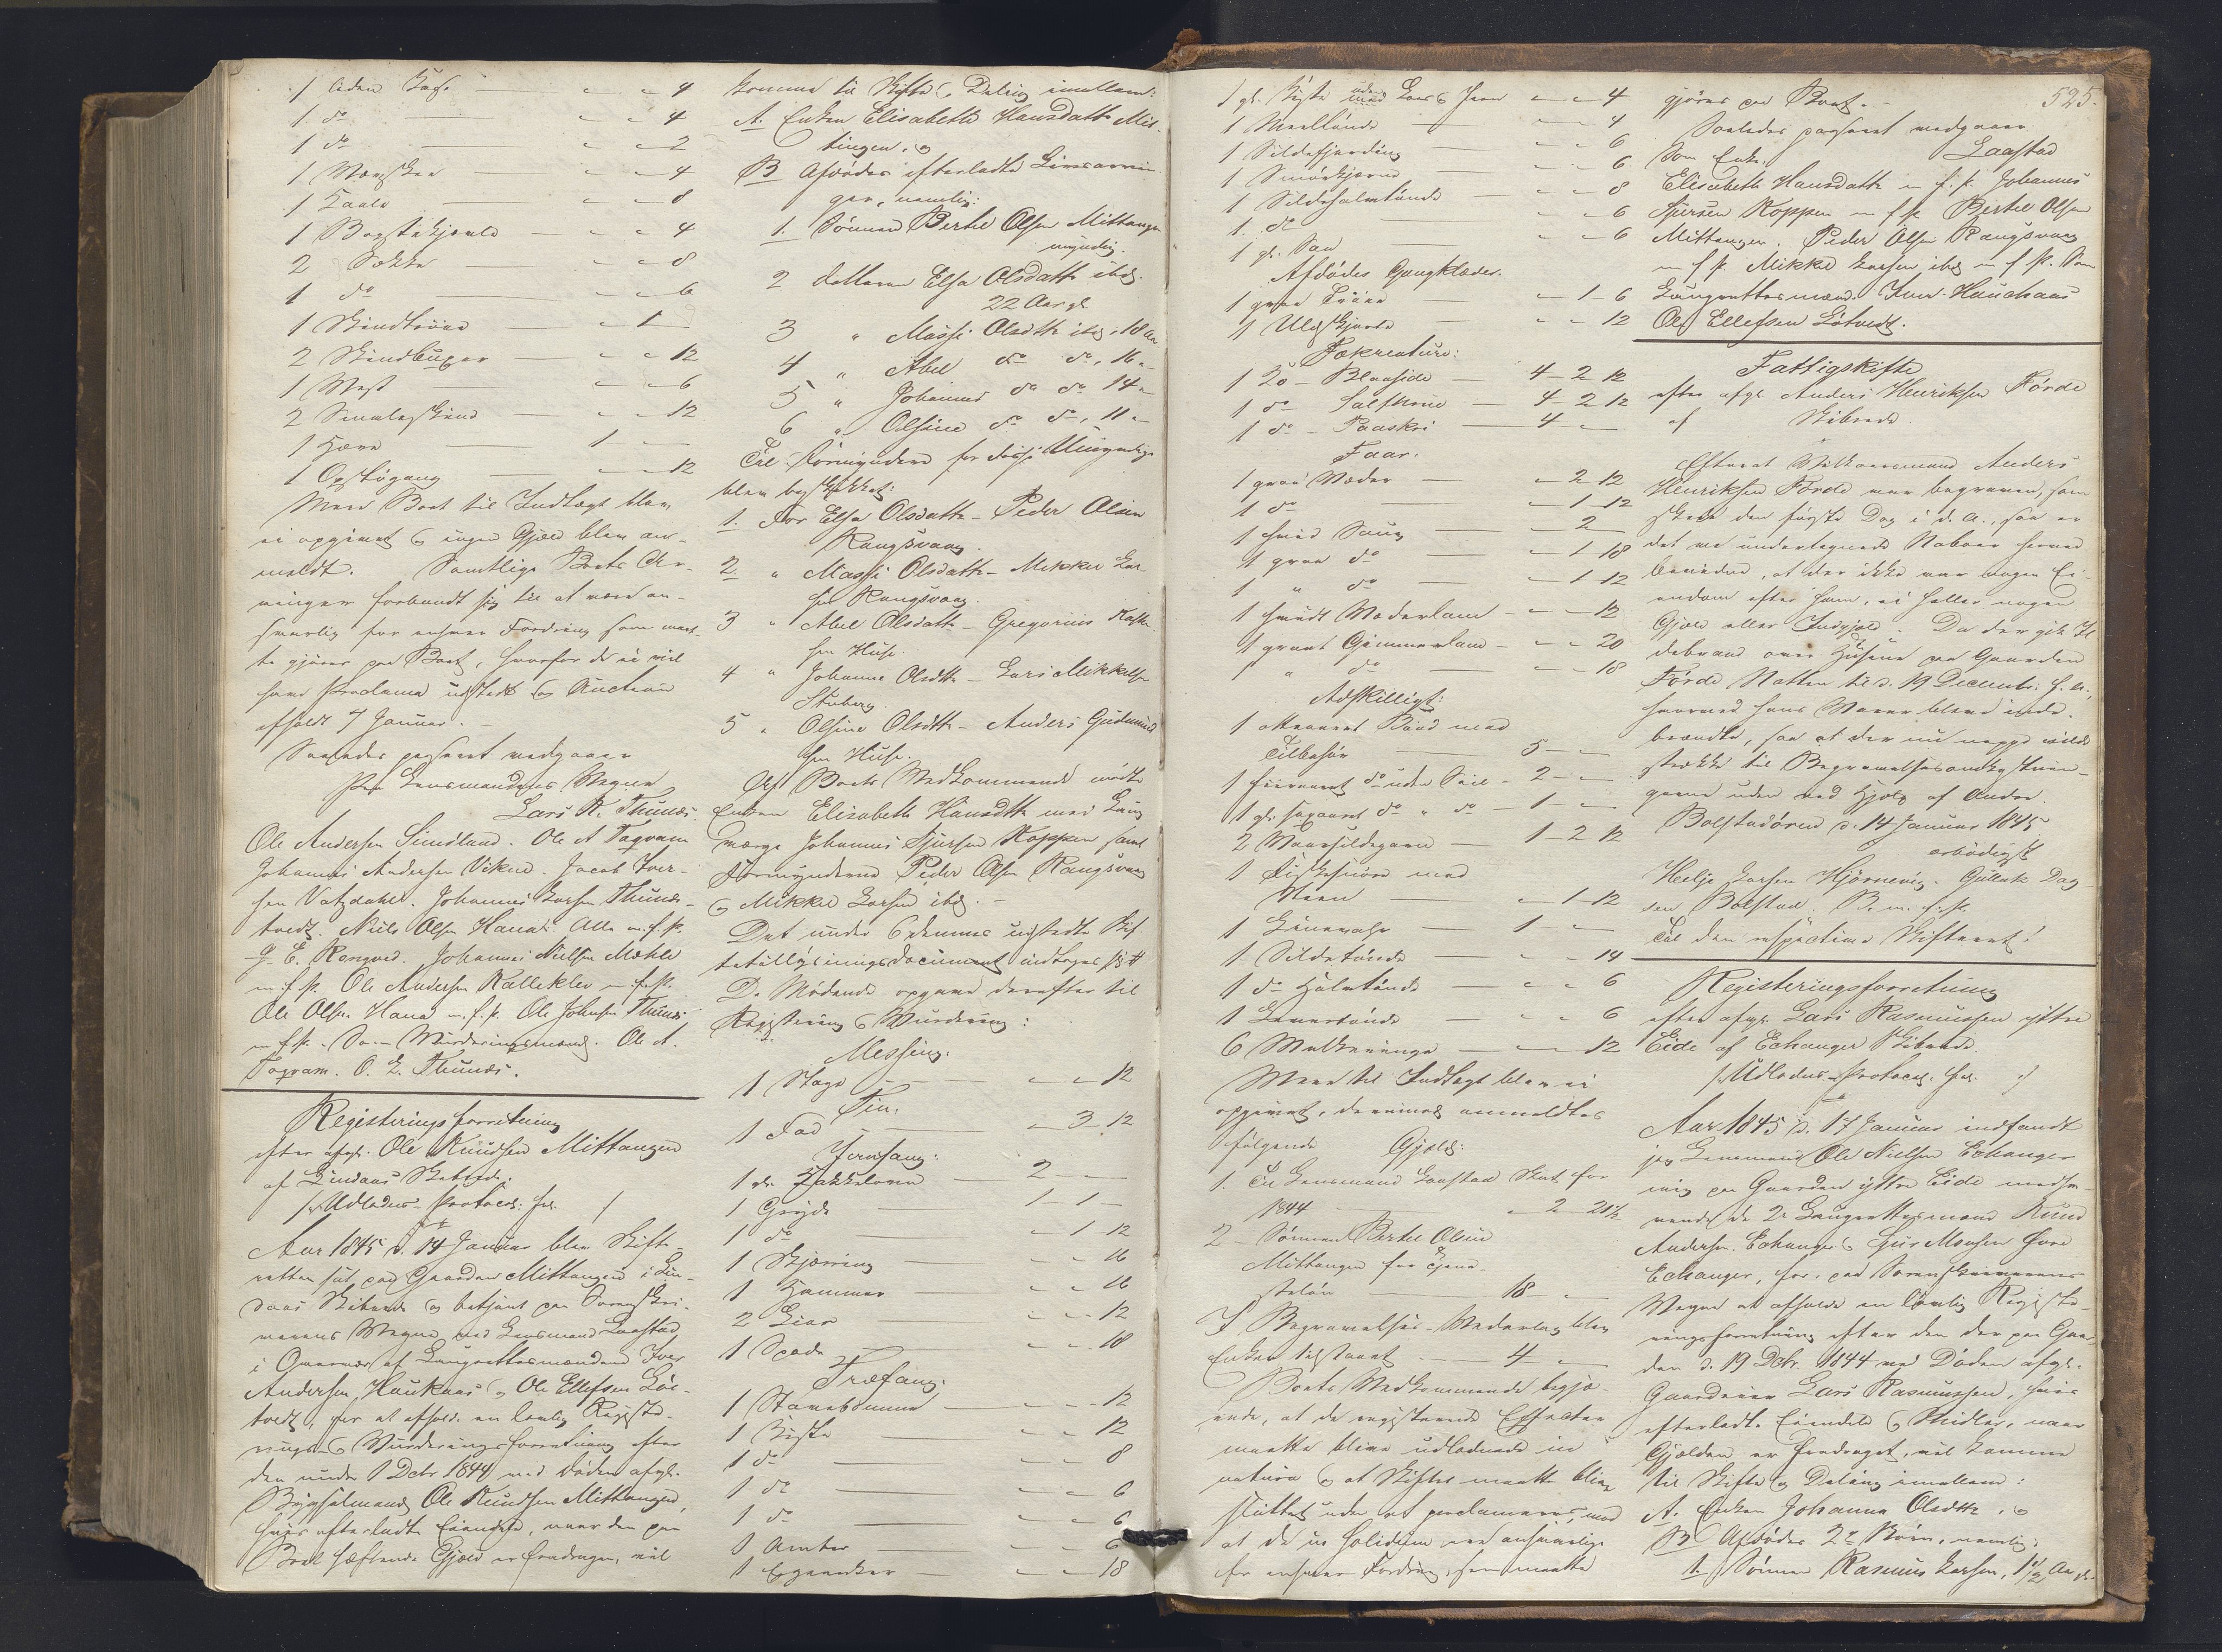 1 liden Kasse - - 4
1 do - - 4
1 do - - 2
1 - - 4
1 - - 8
1 - - 4
2 Sække - - 8
1 do - - 6
1 Skindtrøie - 1 -
2 Skindbuxer - - 12
1 Vest - - 6
2 - - 12
1 1 -
1 Opstøgang - - 12
Mere Boet til Indtægt blev
ei opgivet og ingen Gjæld blev an-
meldt. Samtlige Boets Ar-
vinger forbandt sig til at være an-
svarlig for enhver Fordring som maat-
te gjøres paa Boet, hvorfor de ei vil
have Proclama udstedt og Auction
afholdt 7 Januar. -
Saaledes passeret vedgaaer
Paa Lensmandens Vegne
Lars K. Thunæs.
Ole Andersen Simdland. Ole A Togvam
Johannes Andersen Vikne. Jacob Iver-
sen Vatzdahl. Johannes Larsen Thunæs-
tvedt. Niels Olsen Hana. Alle m. f. P.
J. E. Rongved. Johannes Nielsen Mæhle
m. f. P. Ole Andersen Kalleklev m. f. P.
Ole Olsen Hana m. f. P. Ole Johnsen Thunæs
m. f. P. Som Vurderingsmænd. Ole A.
Togvam. O. L. Thunæs.
Registeringsforretning
efter afgl. Ole Knudsen Mittangen
af Lindaas Skibrede.
/: Udlodn: Protocol: fol. /
Aar 1845 d. 14 Januar blev Skifte-
retten sat paa Gaarden Mittangen i Lin-
daas Skibrede og betjent paa Sorenskri-
verens Vegne ved Lensmand Laastad
i Overvær af Laugrettesmændene Iver
Andersen Haukaas og Ole Ellefsen Løt-
tvedt, for at afhold. en lovlig Registe-
rings- og Vurderingsforretning efter
den under 1 Decbr 1844 ved Døden afgl.
Bygselmand Ole Knudsen Mittangen,
hvis efterladte Eiendele, naar den paa
Boet hæftende Gjæld er fradragen, vil
komme til Skifte og Deling imellem:
A. Enken Elisabeth Hansdattr Mit-
tangen, og
B Afdødes efterladte Livsarvin-
ger, nemlig:
1. Sønnen Bertel Olsen Mittangen
myndig.
2 datteren Elsa Olsdattr ibd.
22 Aar gl.
3 " Massi Olsdttr ibd, 18 Aar
4 " Abel do do, 16 "
5 " Johanne do do 14 "
6 " Olsine do do, 11 "
Til Formyndere for disse Umyndige
blev beskikket:
1. For Elsa Olsdattr - Peder Olsen
Kangsvaag.
2. " Massi Olsdattr - Mikkel Lar-
sen Kangsvaag.
3 " Abel Olsdattr - Gregorius
sen Huse.
4 " Johanne Olsdttr - Lars Mikkelsen
Stuberg.
5 " Olsine Olsdttr - Anders Gudmund-
sen Huse.
Af Boets Vedkommende mødte
Enken Elisabeth Hansdttr med Laug-
værge Johannes Sjursen Koppen samt
Formynderne Peder Olsen Kangsvaag
og Mikkel Larsen ibd. -
Det under 6 dennes udstedte Skif-
tetillysningsdocument indtages sig #
D. Mødende opgave derefter til
Registrering og Vurdering:
Messing:
1 Stage - - 12
Tin.
1 Fad - 3 12
Jernfang:
1 gl. Kakkelovn 2 -
1 Gryde 1 - 1 -
1 do - 1 12
1 Skjæring - - 16
1 Hammer - - 16
2 Liaer - - 12
1 Spade - - 18
Træfang:
1 - - 12
1 Kiste - - 12
1 do - - 8
1 do - - 6
1 do - - 6
1 Ambar - - 6
1 - - 18
525.
1 gl. Kiste uden Laas og Jern - - 4
1 Meeltønde - - 4
1 Sildefjerding - - 6
1 Smørkjerne - - 6
1 Sildehalvtønde - - 8
1. do - - 6
1 gl. Saa - - 6
Afdødes Gangklæder.
1 graa Trøie - 1 - 6
1 Uldskjorte - - 12
Fækreature:
1 Ko - Blaaside 4 - 2 12
1 do Salkrone 4 - 2 12
1 do - Paaskei 4 -
Faar.
1 graa Væder - 2 12
1 do - 1 12
1 hvid Saug - 2
1 graa do - 1 18
1 " do - 1 12
1 hvidt Væderlam - - 12
1 graat Gimmerlam - - 20
1 " do - - 18
Adskilligt:
1 ottraaret Baad med
Tilbehør 5 -
1 fireraaret do uden Seil - 2 -
1 gl. sexaaret do " do - 1 -
2 Vaarsildegarn 1 - 2 12
1 Fiskesnøre med
Steen - 1 - 12
1 1 -
1 Sildetønde - - 14
1 do Halvtønde - - 6
1 Levertønde - - 6
6 Melkeringe - - 12
Mere til Indtægt blev ei
opgivet, derimod anmeldtes
følgende Gjæld:
1. Til Lensmand Laastad Skat for
1844 - 2 - 21½
2 - Sønnen Bertel Olsen
Mittangen for Tjene-
steløn 18 -
I Begravelses-Vederlag blev
Enken tilstaaet - 4 -
Boets Vedkommende begjæ-
rede, at de registrerede Effecter
maatte blive udlodnede in
natura og at Skiftet maatte blive
sluttet uden at proclameres, mod
at de in solidum ere ansvarlige
for enhver Fordring, som maatte
gjøres paa Boet. -
Saaledes passeret vedgaaer
Laastad
Som Enke,
Elisabeth Hansdattr m. f. P. Johannes
Sjursen Koppen m f P Bertel Olsen
Mittangen. Peder Olsen Kangsvaag
m f P. Mikkel Larsen ibd m f P. Som
Laugrettesmænd. Iver Hauchaas
Ole Ellefsen Løtvedt.
Fattigskifte
efter afgl. Anders Henriksen Førde
af Skibrede.
Efterat Vilkaarsmand Anders
Henriksen Førde var begraven, som
skede den første Dag i d. A., saa er
det vi undertegnede Naboer herved
bevidne, at der ikke var nogen Ei-
endom efter ham, ei heller nogen
Gjæld eller Indgjæld. Da der gik Il-
debrand over Husene paa Gaarden
Førde Natten til d. 19 Decembr. f. A.,
hvorved hans Varer bleve inde-
brændte, saa at der nu neppe vilde
strække til Begravelsesomkostnin-
gerne uden ved Hjælp af Andre.
Bolstadøren d. 14 Januar 1845
ærbødigst
Helje Larsen Hjørnevig. Gullak Dag-
sen Bolstad. B. m. f. P.
Til den respective Skifteret!
Registeringsforretning
efter afgl. Lars Rasmussen yttre
Eide af Echanger Skibrede.
/: Udlodns-Protocol: fol. :/
Aar 1845 d. 17 Januar indfandt
jeg Lensmand Ole Nielsen Echanger
mig paa Gaarden yttre Eide medha-
vende de 2de Laugrettesmænd Knud
Andersen Echanger og Sjur Monsen Hove
Echanger, for, paa Sorenskriverens
Vegne at afholde en lovlig Registe-
ringsforretning efter den der paa Gaar-
den d. 19 Dcbr. 1844 ved Døden afgl.
Gaardeier Lars Rasmussen, hvis
efterladte Eiendele og Midler, naar
Gjælden er fradraget, vil komme
til Skifte og Deling imellem:
A. Enken Johanna Olsdttr, og
B Afdødes 2de Børn, nemlig:
1. Sønnen Rasmus Larsen, 1½ Aar gl.